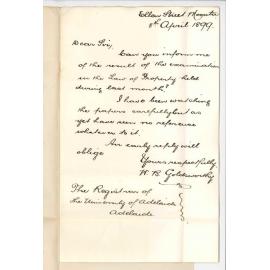 Ellen Street Moonta
8th April 1899.
Dear Sir,
Can you inform me
of the result of the examination
in the Law of Property held
during last month?
I have been watching
the papers carefully but as
yet have seen no reference
whatever to it.
An early reply will
oblige
Yours respectfully
W. R. Goldsworthy
The Registrar of
The University of Adelaide
Adelaide